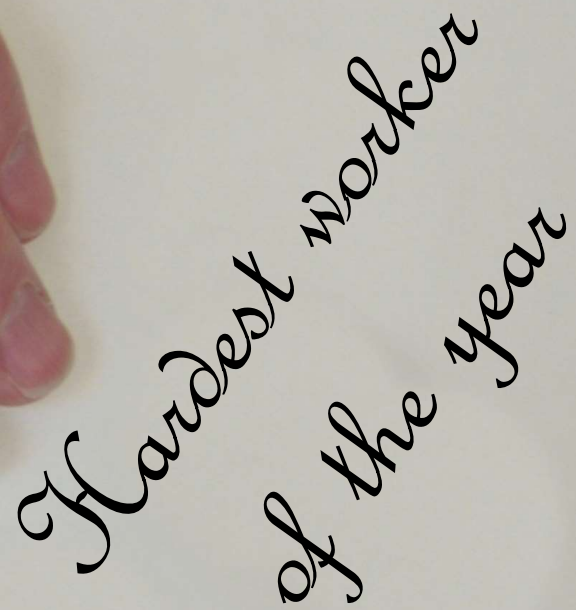 Hardest worker
of the year